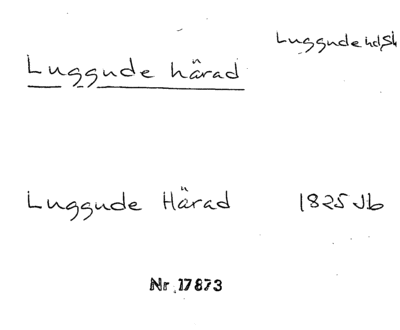 Luggude hd, Sk
Luggude härad
Luggude Härad 1825 Jb
Nr 17873